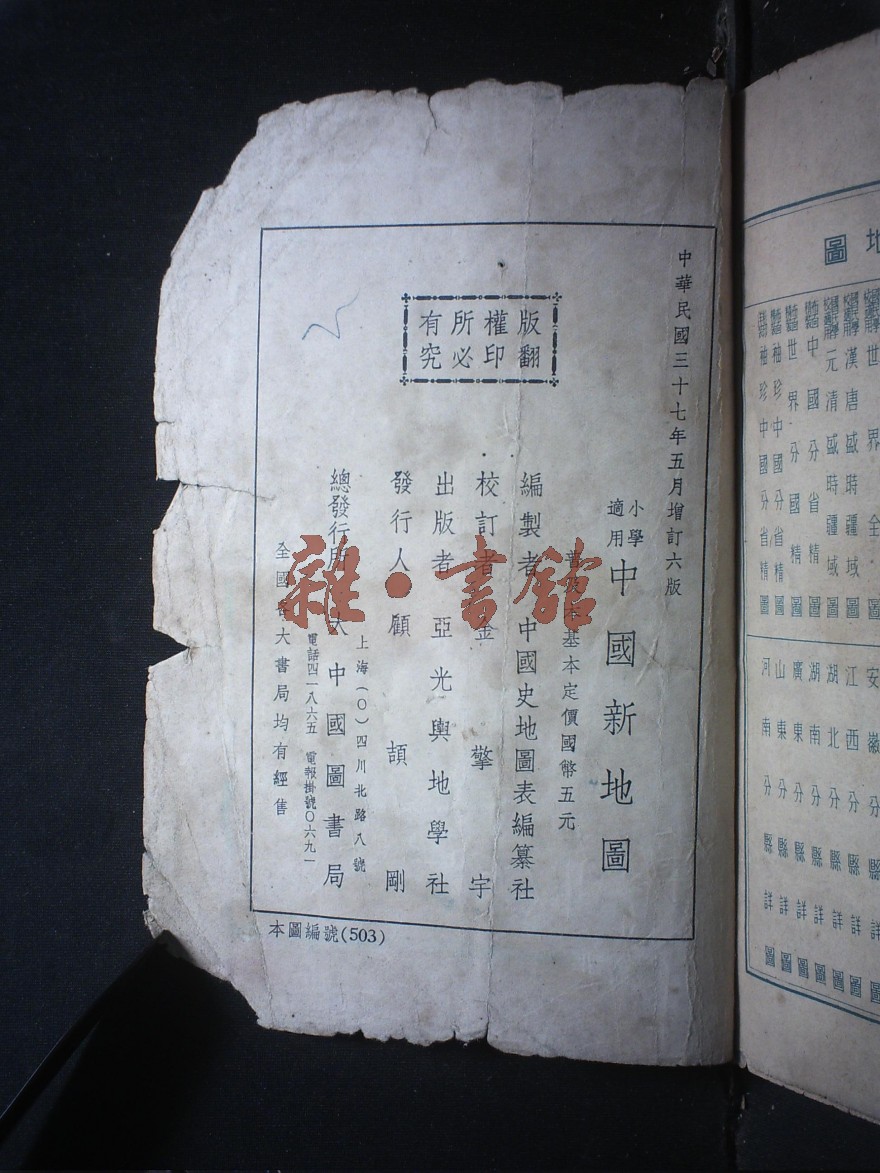 中華民國三十七年五月增訂六版
小學
適用
中國新地圖
普及本基本定價國幣五元
編製者 中國史地圖表編纂社
校訂者 金擎宇
出版者 亞光輿地學社
發行人 顧頡剛
總發行所 大中國圖書局
上海(0)四川北路八號
電話四一八六五 電報掛號〇六九一
全國各大書局均有經售
版權所有
翻印必究
本圖編號(503)
雜·書館
地圖
世界全圖
漢唐盛時疆域圖
元清盛時疆域圖
中國分省精圖
世界分國精圖
袖珍中國分省精圖
袖珍中國分省精圖
安徽分縣詳圖
江西分縣詳圖
湖北分縣詳圖
湖南分縣詳圖
廣東分縣詳圖
山東分縣詳圖
河南分縣詳圖